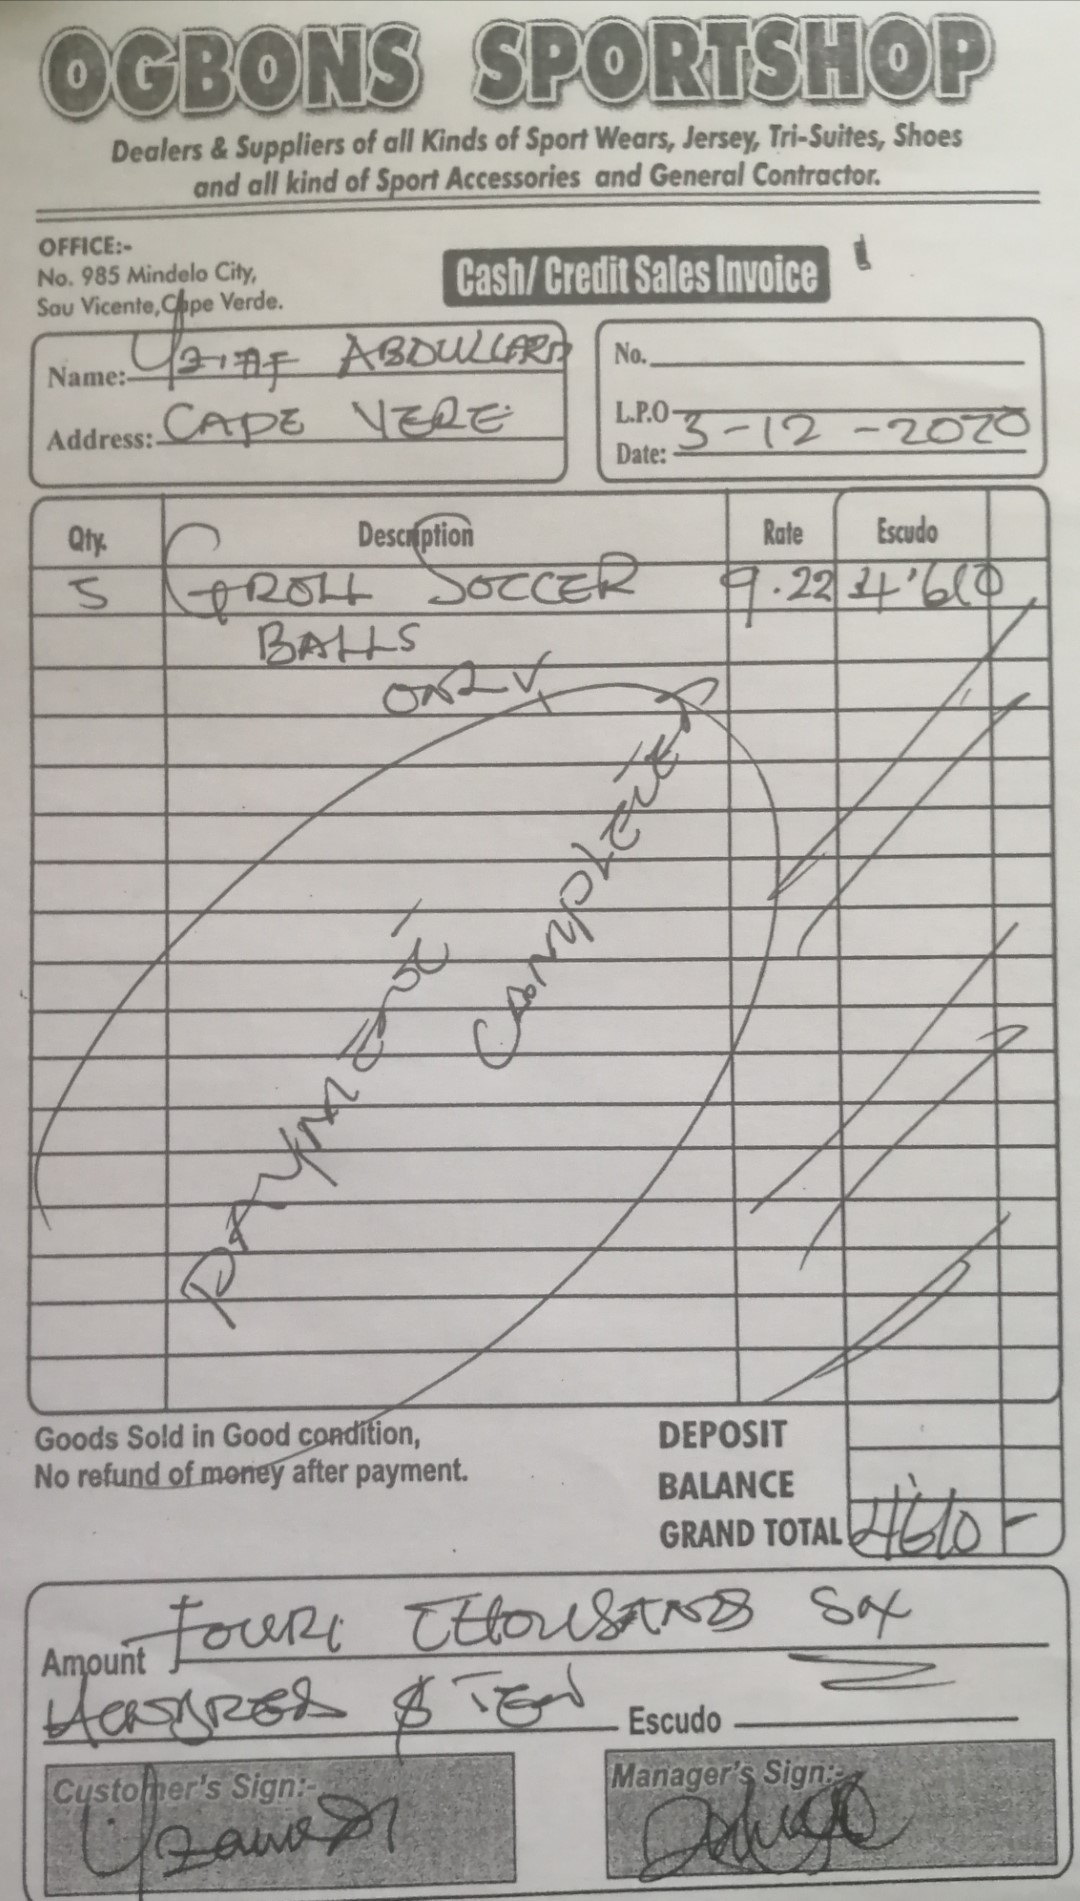 OGBONS SPORTSHOP
Dealers & Suppliers of all Kinds of Sport Wears, Jersey, Tri-Suites, Shoes
and all kind of Sport Accessories and General Contractor.
OFFICE:-
No. 985 Mindelo City,
Sau Vicente, Cape Verde.
Cash/ Credit Sales Invoice
Name: ABDULLARD
Address: CAPE VERE
No.
L.P.O
Date: 3-12-2020
Qty. Description Rate Escudo
5 GROLL SOCCER 9.22 4'610
BALLS
ONLY
PAYMENT
COMPLETE
Goods Sold in Good condition,
No refund of money after payment.
DEPOSIT
BALANCE
GRAND TOTAL 4'610 -
Amount FOUR THOUSAND SIX
HUNDRED & TEN Escudo
Customer's Sign:-
Manager's Sign:-